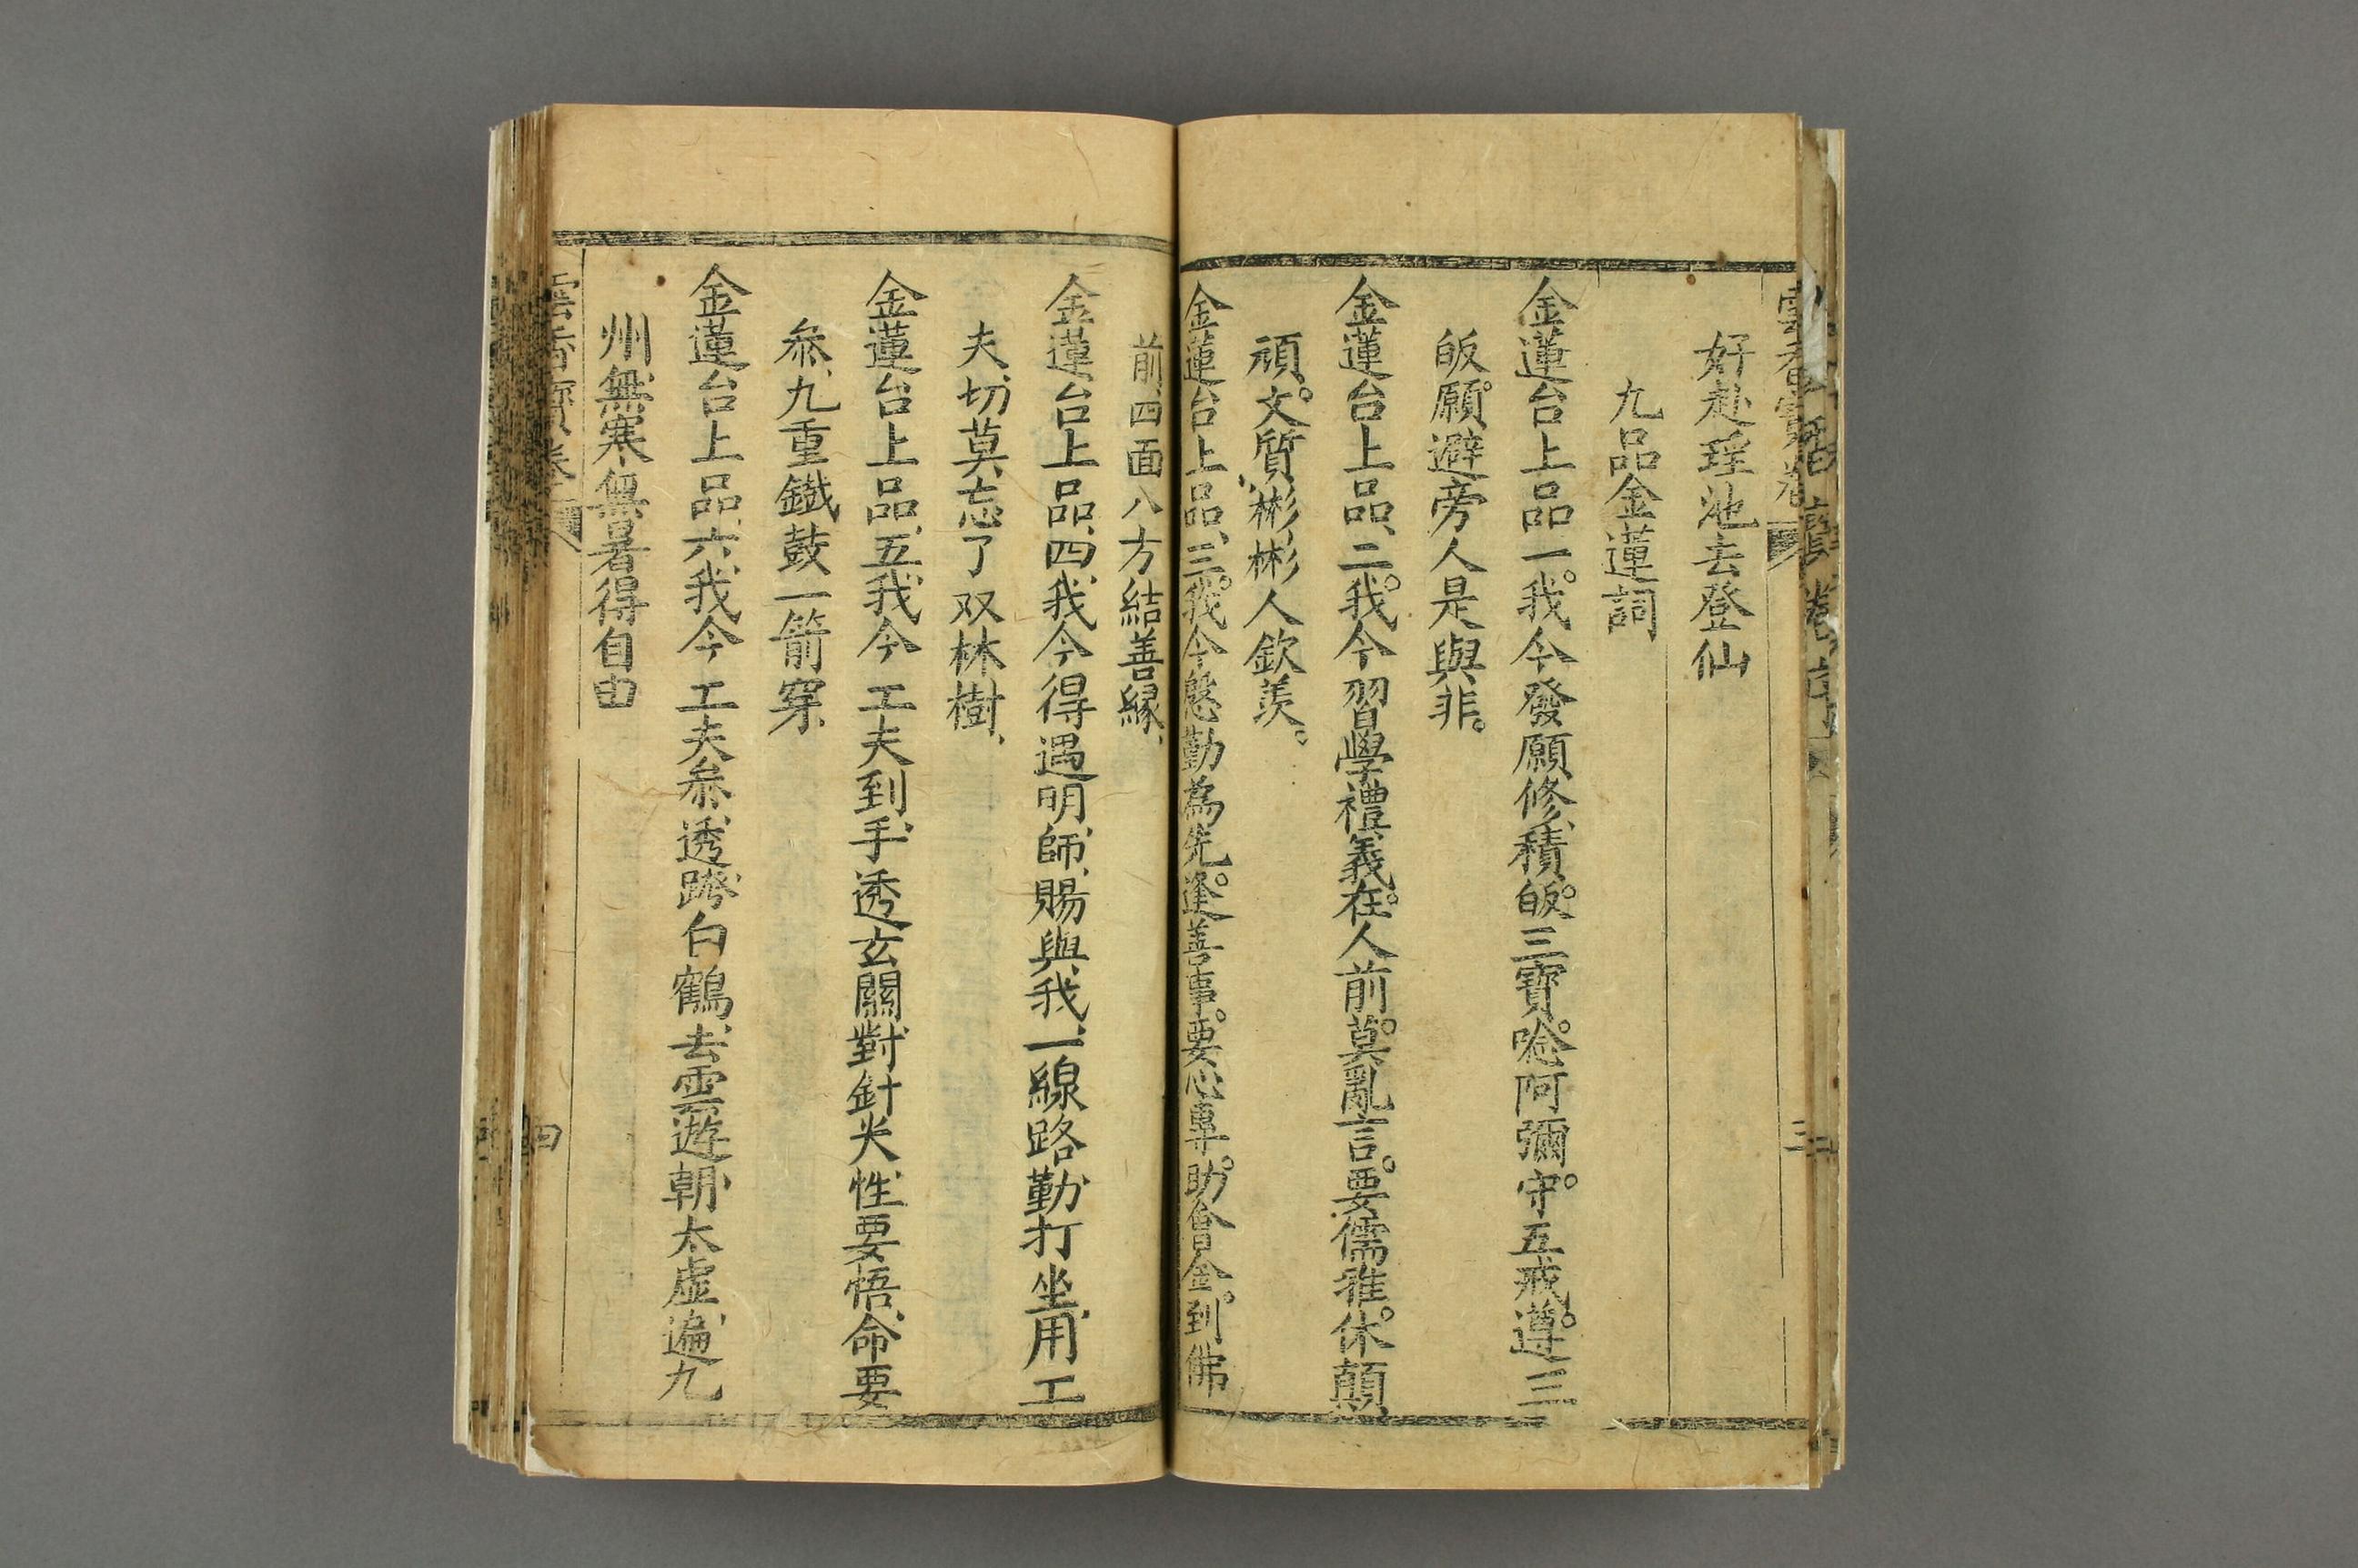 好赴瑶池去登仙
九品金蓮詞
金蓮台上品一。我今發願修、積皈。三寶。唸阿彌守。五戒。遵三
皈。願避旁人是與非。
金蓮台上品、二。我今習學禮義在。人前。莫亂言。要儒雅。休顛
頑。文質、彬彬人欽羨。
金蓮台上品、三。我今慇勤為先。逢善事。要心專。助會金。到佛
前、四面八方結善縁、
金蓮台上品、四、我今得遇明師、賜與我、一線路勤、打坐、用、工
夫、切、莫、忘了双林樹、
金蓮台上品、五、我、今工夫到、手、透玄關、對針尖性、要悟、命要
叅、九重鐵鼓一箭穿、
金蓮台上品、六、我、今工夫叅、透、跨、白鶴、去、雲遊、朝、太虛、遍、九
州、無寒、無暑得自由
三
四